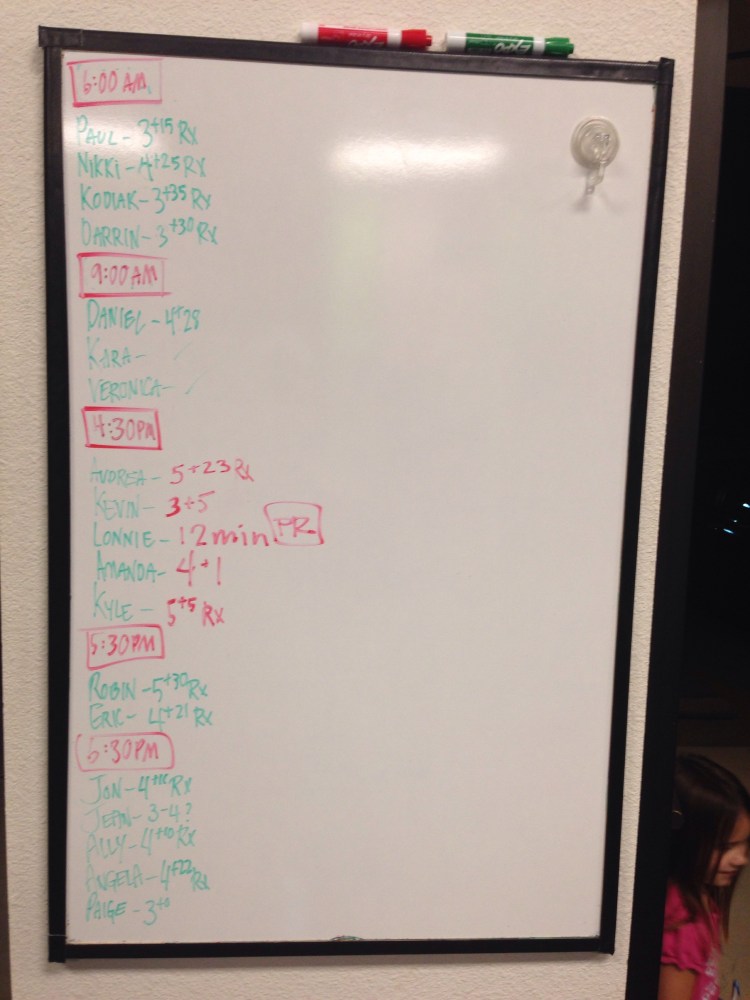 EXPO
EXPO
6:00 AM
PAUL - 3+15 Rx
NIKKI - 4+25 Rx
KODIAK - 3+35 Rx
DARRIN - 3+30 Rx
9:00 AM
DANIEL - 4+28
KARA - ✓
VERONICA - ✓
4:30 PM
ANDREA - 5+23 Rx
KEVIN - 3+5
LONNIE - 12 min PR
AMANDA - 4+1
KYLE - 5+5 Rx
5:30 PM
ROBIN - 5+30 Rx
ERIC - 4+21 Rx
6:30 PM
JON - Rx
3-4?
ALLY - 4+10 Rx
ANGELA - 4+22 Rx
PAIGE - 3+0